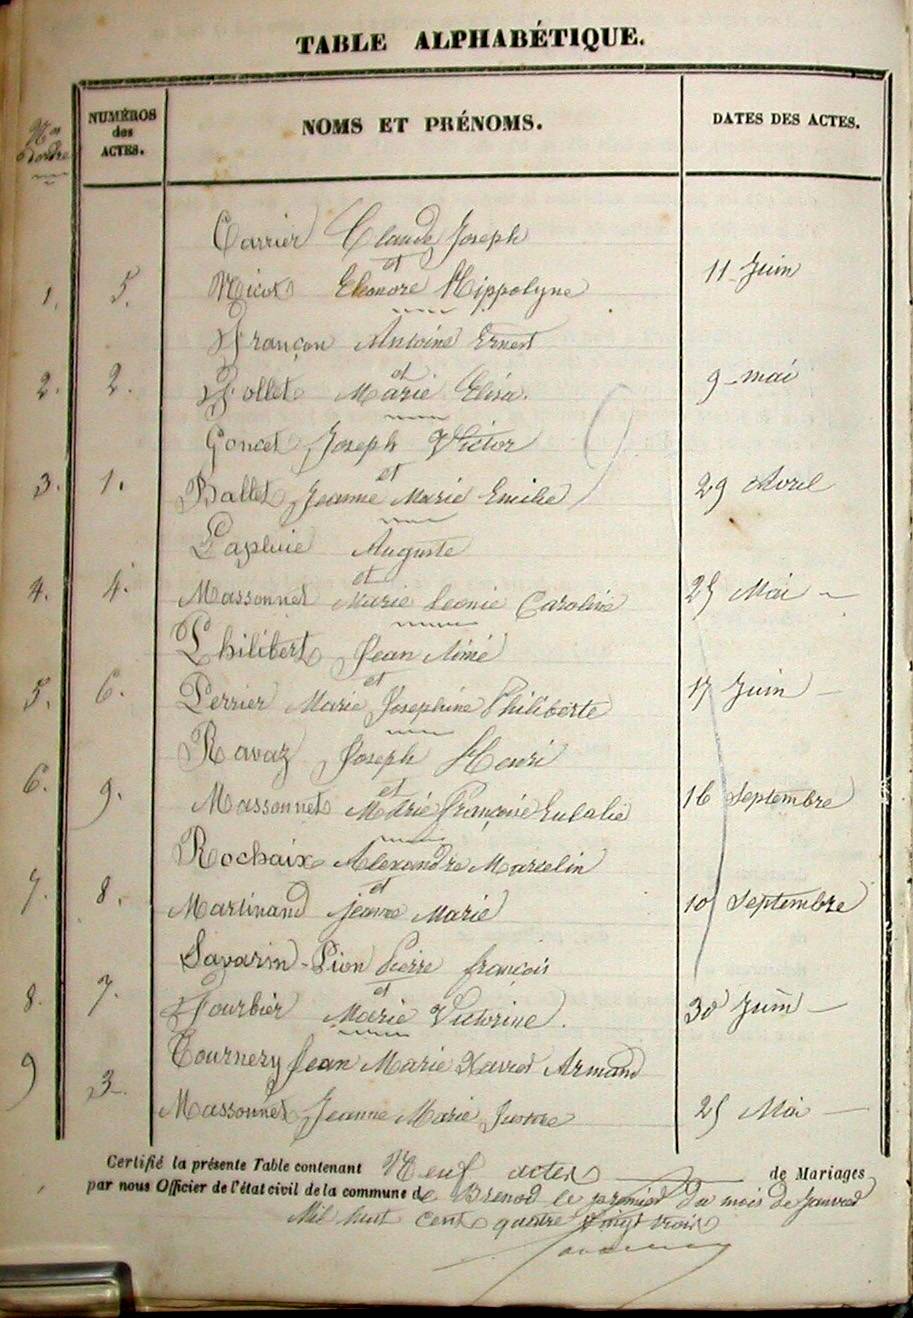 TABLE ALPHABÉTIQUE.
Nos d'ordre
NUMÉROS des ACTES.
NOMS ET PRÉNOMS.
DATES DES ACTES.
Carrier Claude Joseph
et
1. 5. Nicot Eléonore Hippolyne 11 Juin
Françon Antoine Ernest
et
2. 2. Follet Marie Elisa. 9 mai
Goncet Joseph Victor
et
3. 1. Ballet Jeanne Marie Emilie 29 Avril
Lapluie Auguste
et
4. 4. Massonnet Marie Leonie Caroline 25 Mai
Philibert Jean Aimé
et
5. 6. Perrier Marie Josephine Philiberte 17 Juin
Ravaz Joseph Henri
et
6. 9. Massonnet Marie Françoise Eulalie 16 Septembre
Rochaix Alexandre Marcelin
et
7. 8. Martinand jeanne Marie 10 Septembre
Savarin-Pion Pierre françois
et
8. 7. Fourbier Marie Victorine. 30 Juin
Tournery Jean Marie Xavier Armand
9 3 Massonnet Jeanne Marie 25 Mai
Certifié la présente Table contenant Neuf actes de Mariages
par nous Officier de l'état civil de la commune de Brenod le premier du mois de Janvier
Mil huit cent quatre vingt trois